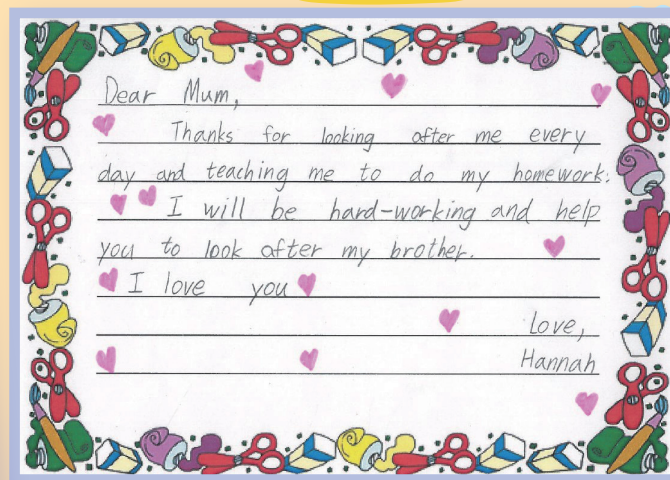 Dear Mum,
Thanks for looking after me every
day and teaching me to do my homework.
I will be hard-working and help
you to look after my brother.
I love you
Love,
Hannah